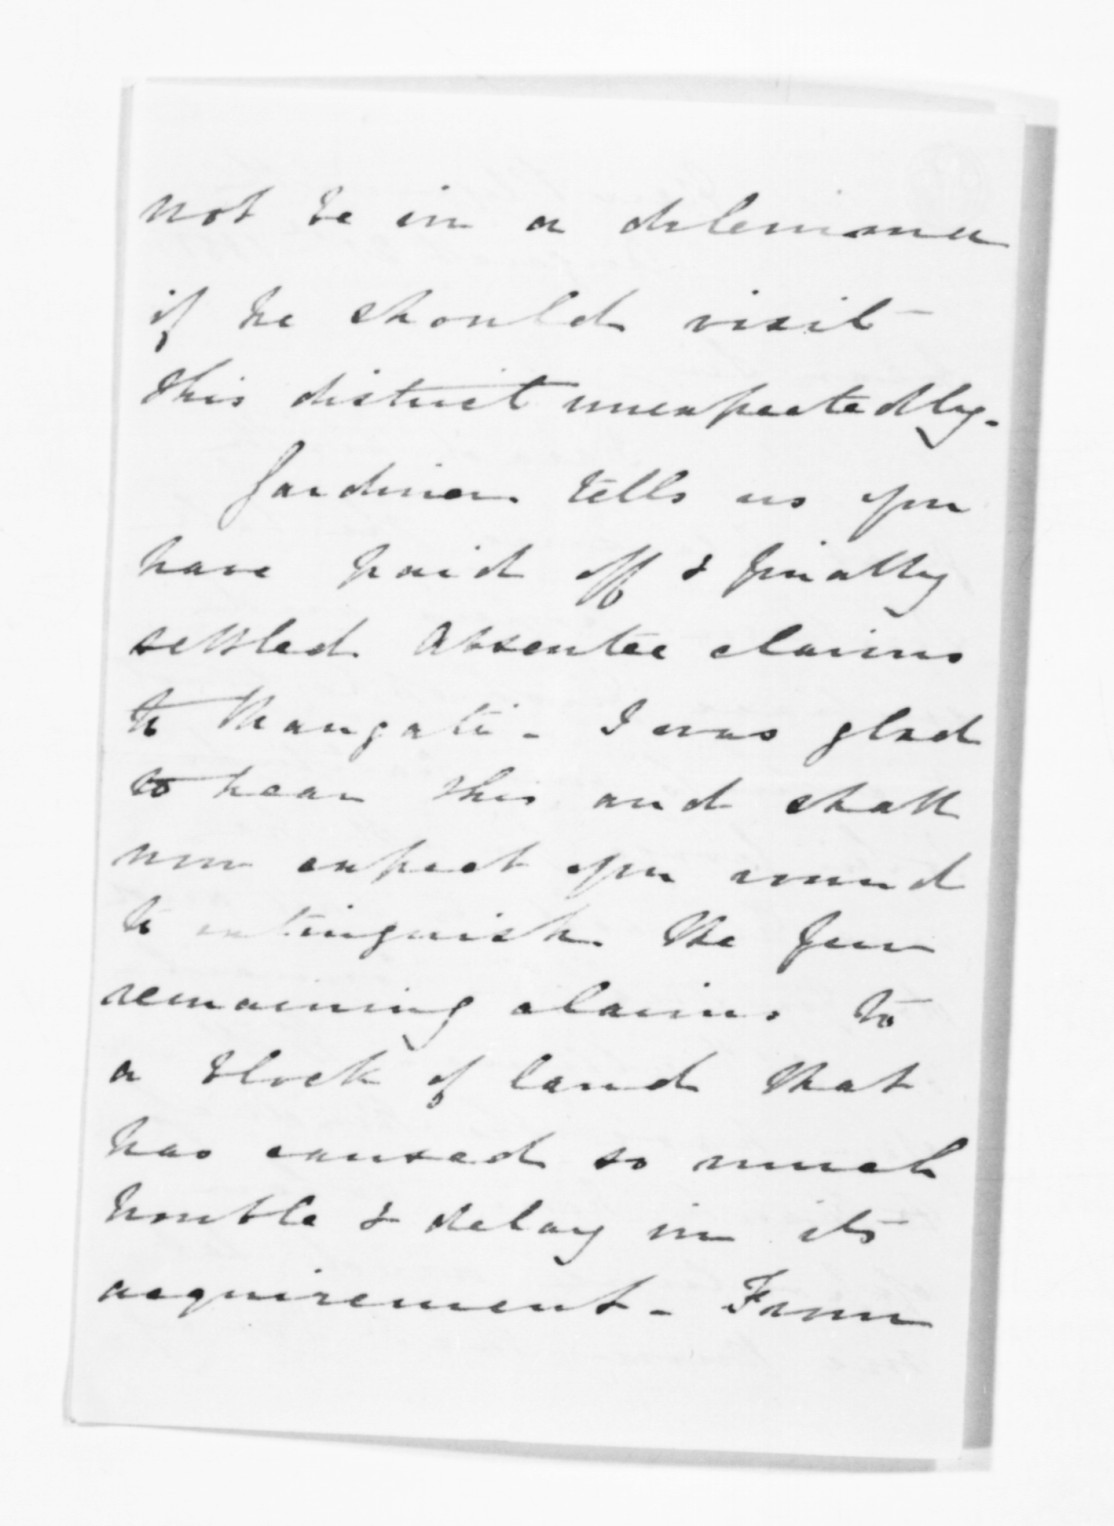 not be in a dilemma
if he should visit
this district unexpectedly.
Gardiner tells us you
have paid off & finally
settled Absentee claims
to Maungati - I was glad
to hear this and shall
now expect you round
to extinguish the few
remaining claims to
a block of land that
has caused so much
trouble & delay in its
acquirement - From